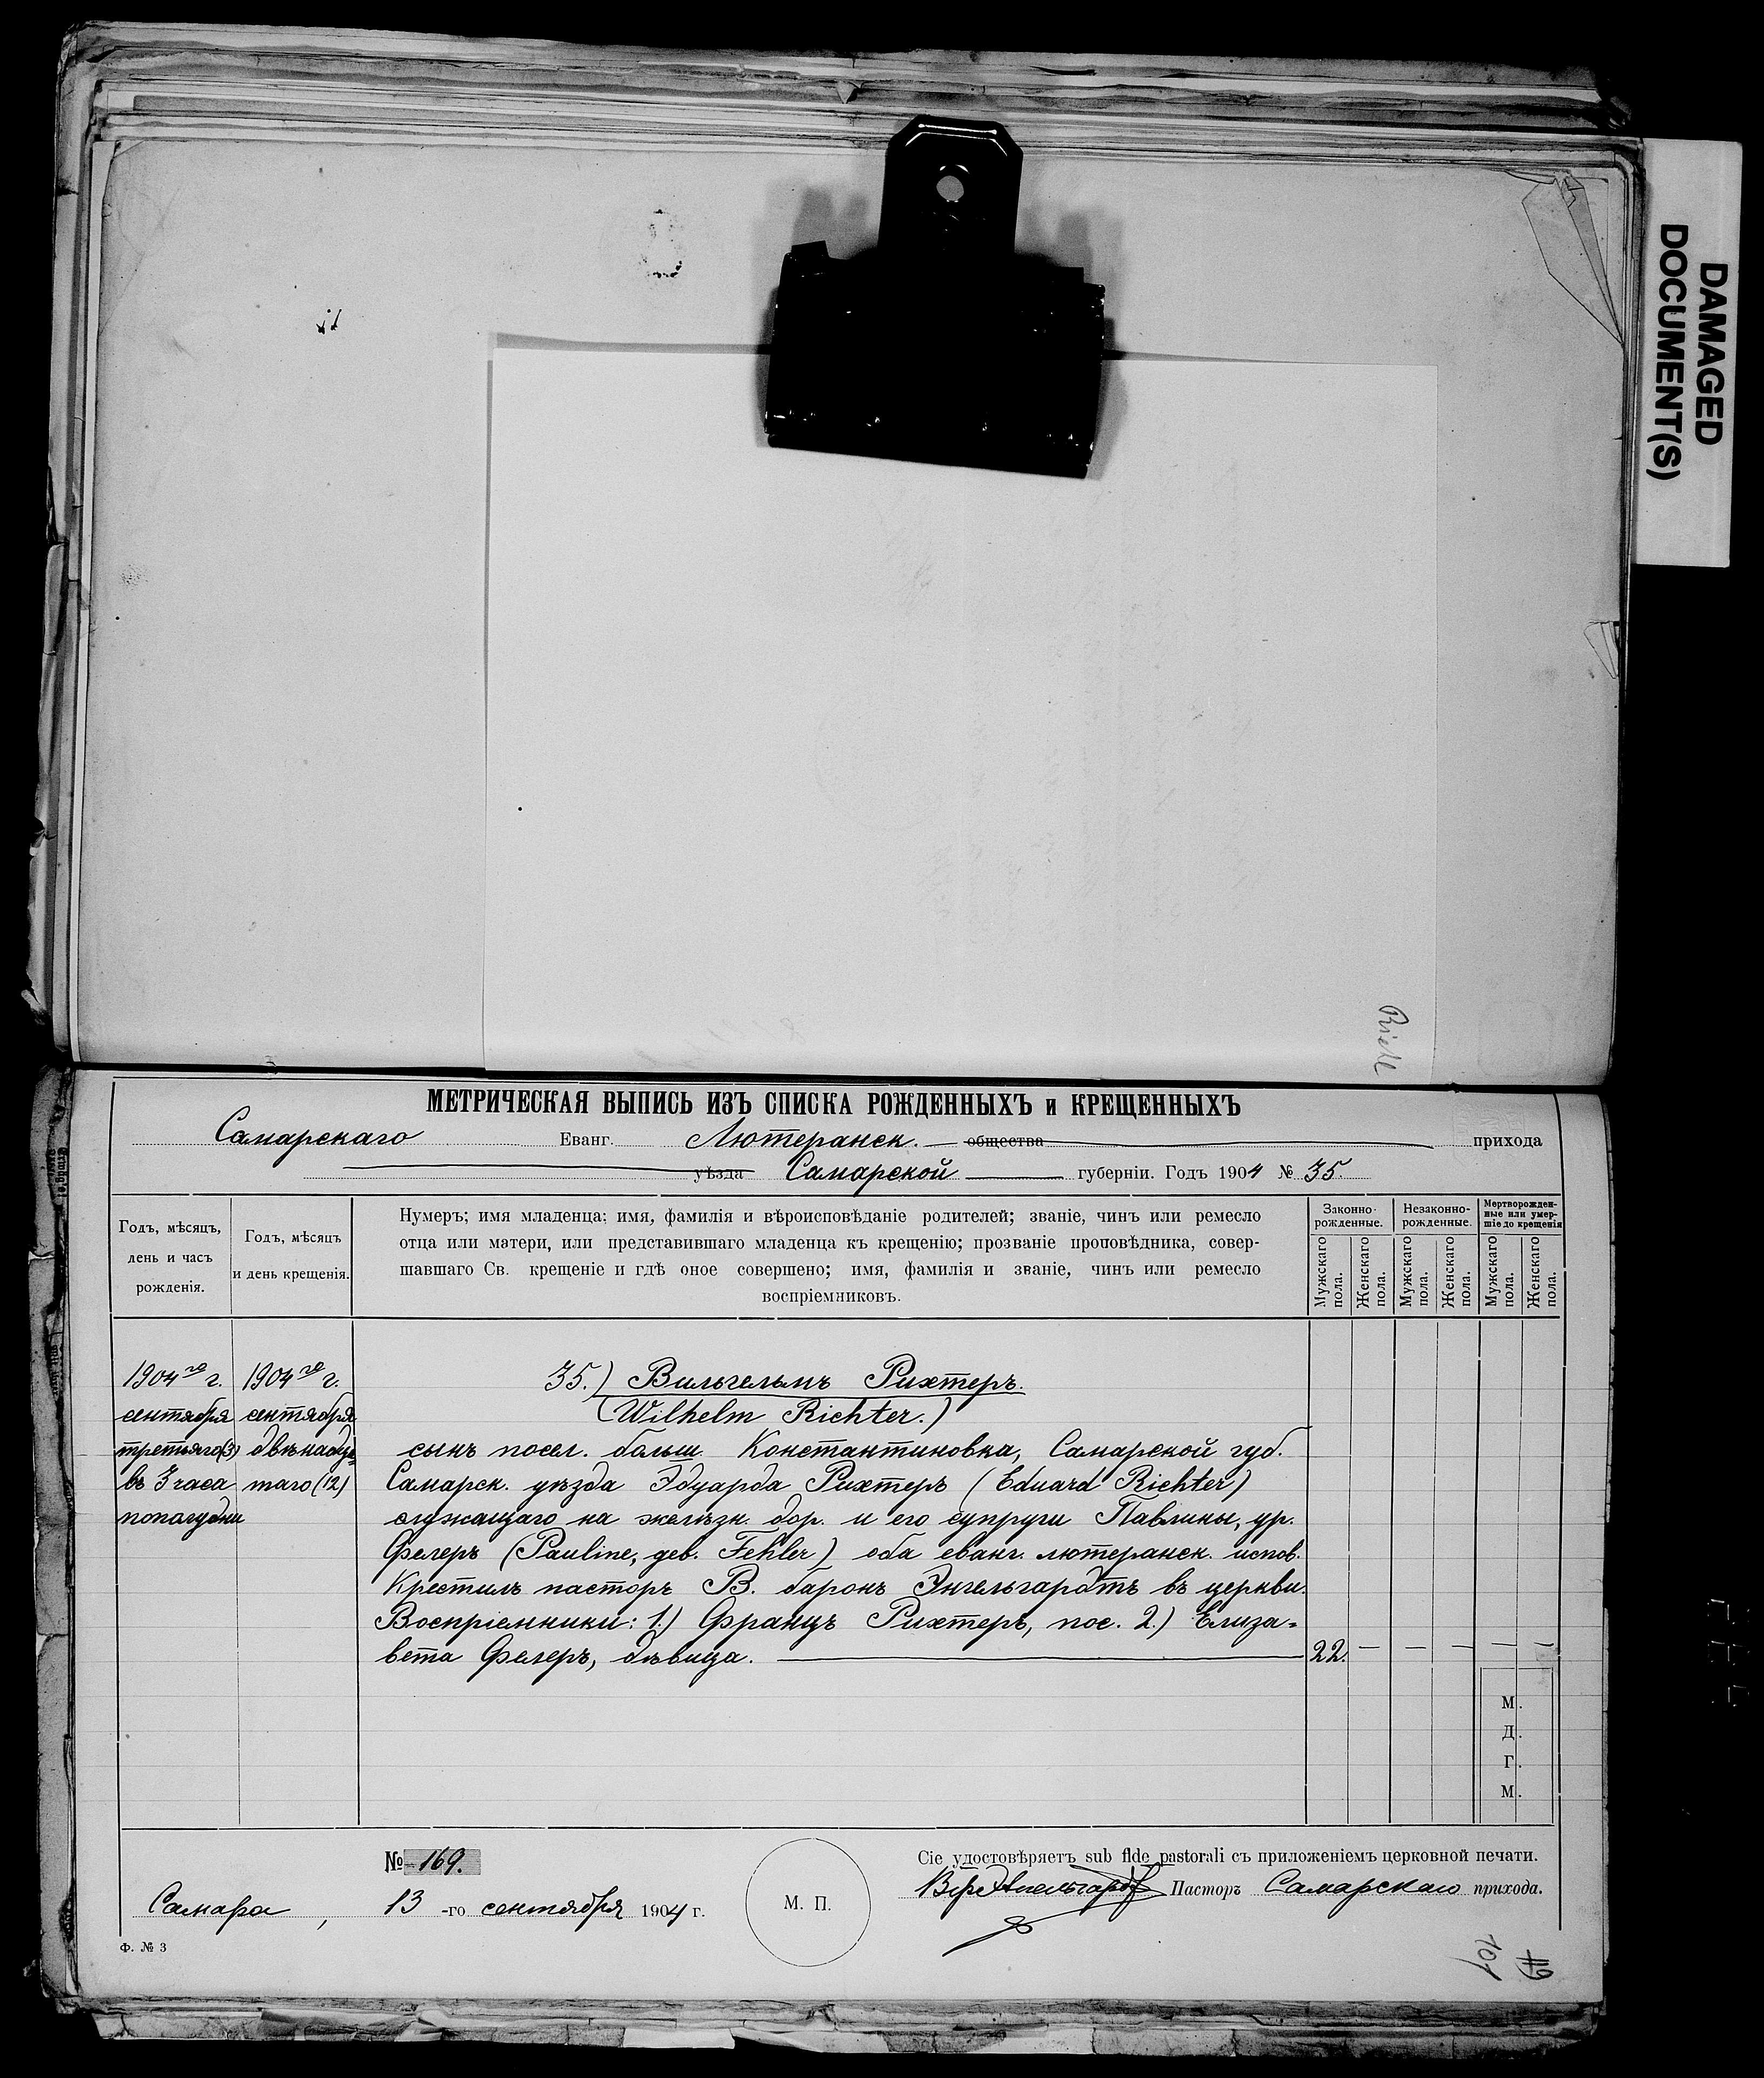 DAMAGED
DOCUMENT(S)
МЕТРИЧЕСКАЯ ВЫПИСЬ ИЗЪ СПИСКА РОЖДЕННЫХЪ и КРЕЩЕННЫХЪ
Самарскаго Еванг. Лютеранск. общества прихода
уѣзда Самарской губерніи. Годъ 1904 № 35.
Годъ, мѣсяцъ,
день и часъ
рожденія.
Годъ, мѣсяцъ
и день крещенія.
Нумеръ; имя младенца; имя, фамилія и вѣроисповѣданіе родителей; званіе, чинъ или ремесло
отца или матери, или представившаго младенца къ крещенію; прозваніе проповѣдника, совер-
шавшаго Св. крещеніе и гдѣ оное совершено; имя, фамилія и званіе, чинъ или ремесло
воспріемниковъ.
Законно-
рожденные.
Незаконно-
рожденные.
Мертворожден-
ные или умер-
шіе до крещенія
Мужскаго
пола.
Женскаго
пола.
Мужскаго
пола.
Женскаго
пола.
Мужскаго
пола.
Женскаго
пола.
1904го г.
сентября
третьяго(3)
въ 3 часа
пополудни
1904го г.
сентября
двѣнадца-
таго (12)
35.) Вильгельмъ Рихтеръ.
(Wilhelm Richter.)
сынъ посел. больш. Константиновка, Самарской губ.
Самарск. уѣзда Эдуарда Рихтеръ (Eduard Richter)
служащаго на желѣзн. дор. и его супруги Павлины, ур.
Фелеръ (Pauline, geb. Fehler) оба еванг. лютеранск. испов.
Крестилъ пасторъ В. баронъ Энгельгардтъ въ церкви.
Воспріемники: 1.) Францъ Рихтеръ, пос. 2.) Елиза=
вета Фелеръ, дѣвица. 22. — — — — —
М.
Д.
Г.
М.
№ 169.
Сіе удостовѣряетъ sub fide pastorali съ приложеніемъ церковной печати.
Пасторъ Самарскаго прихода.
Самара, 13-го сентября 1904 г.
М. П.
Ф. № 3
101